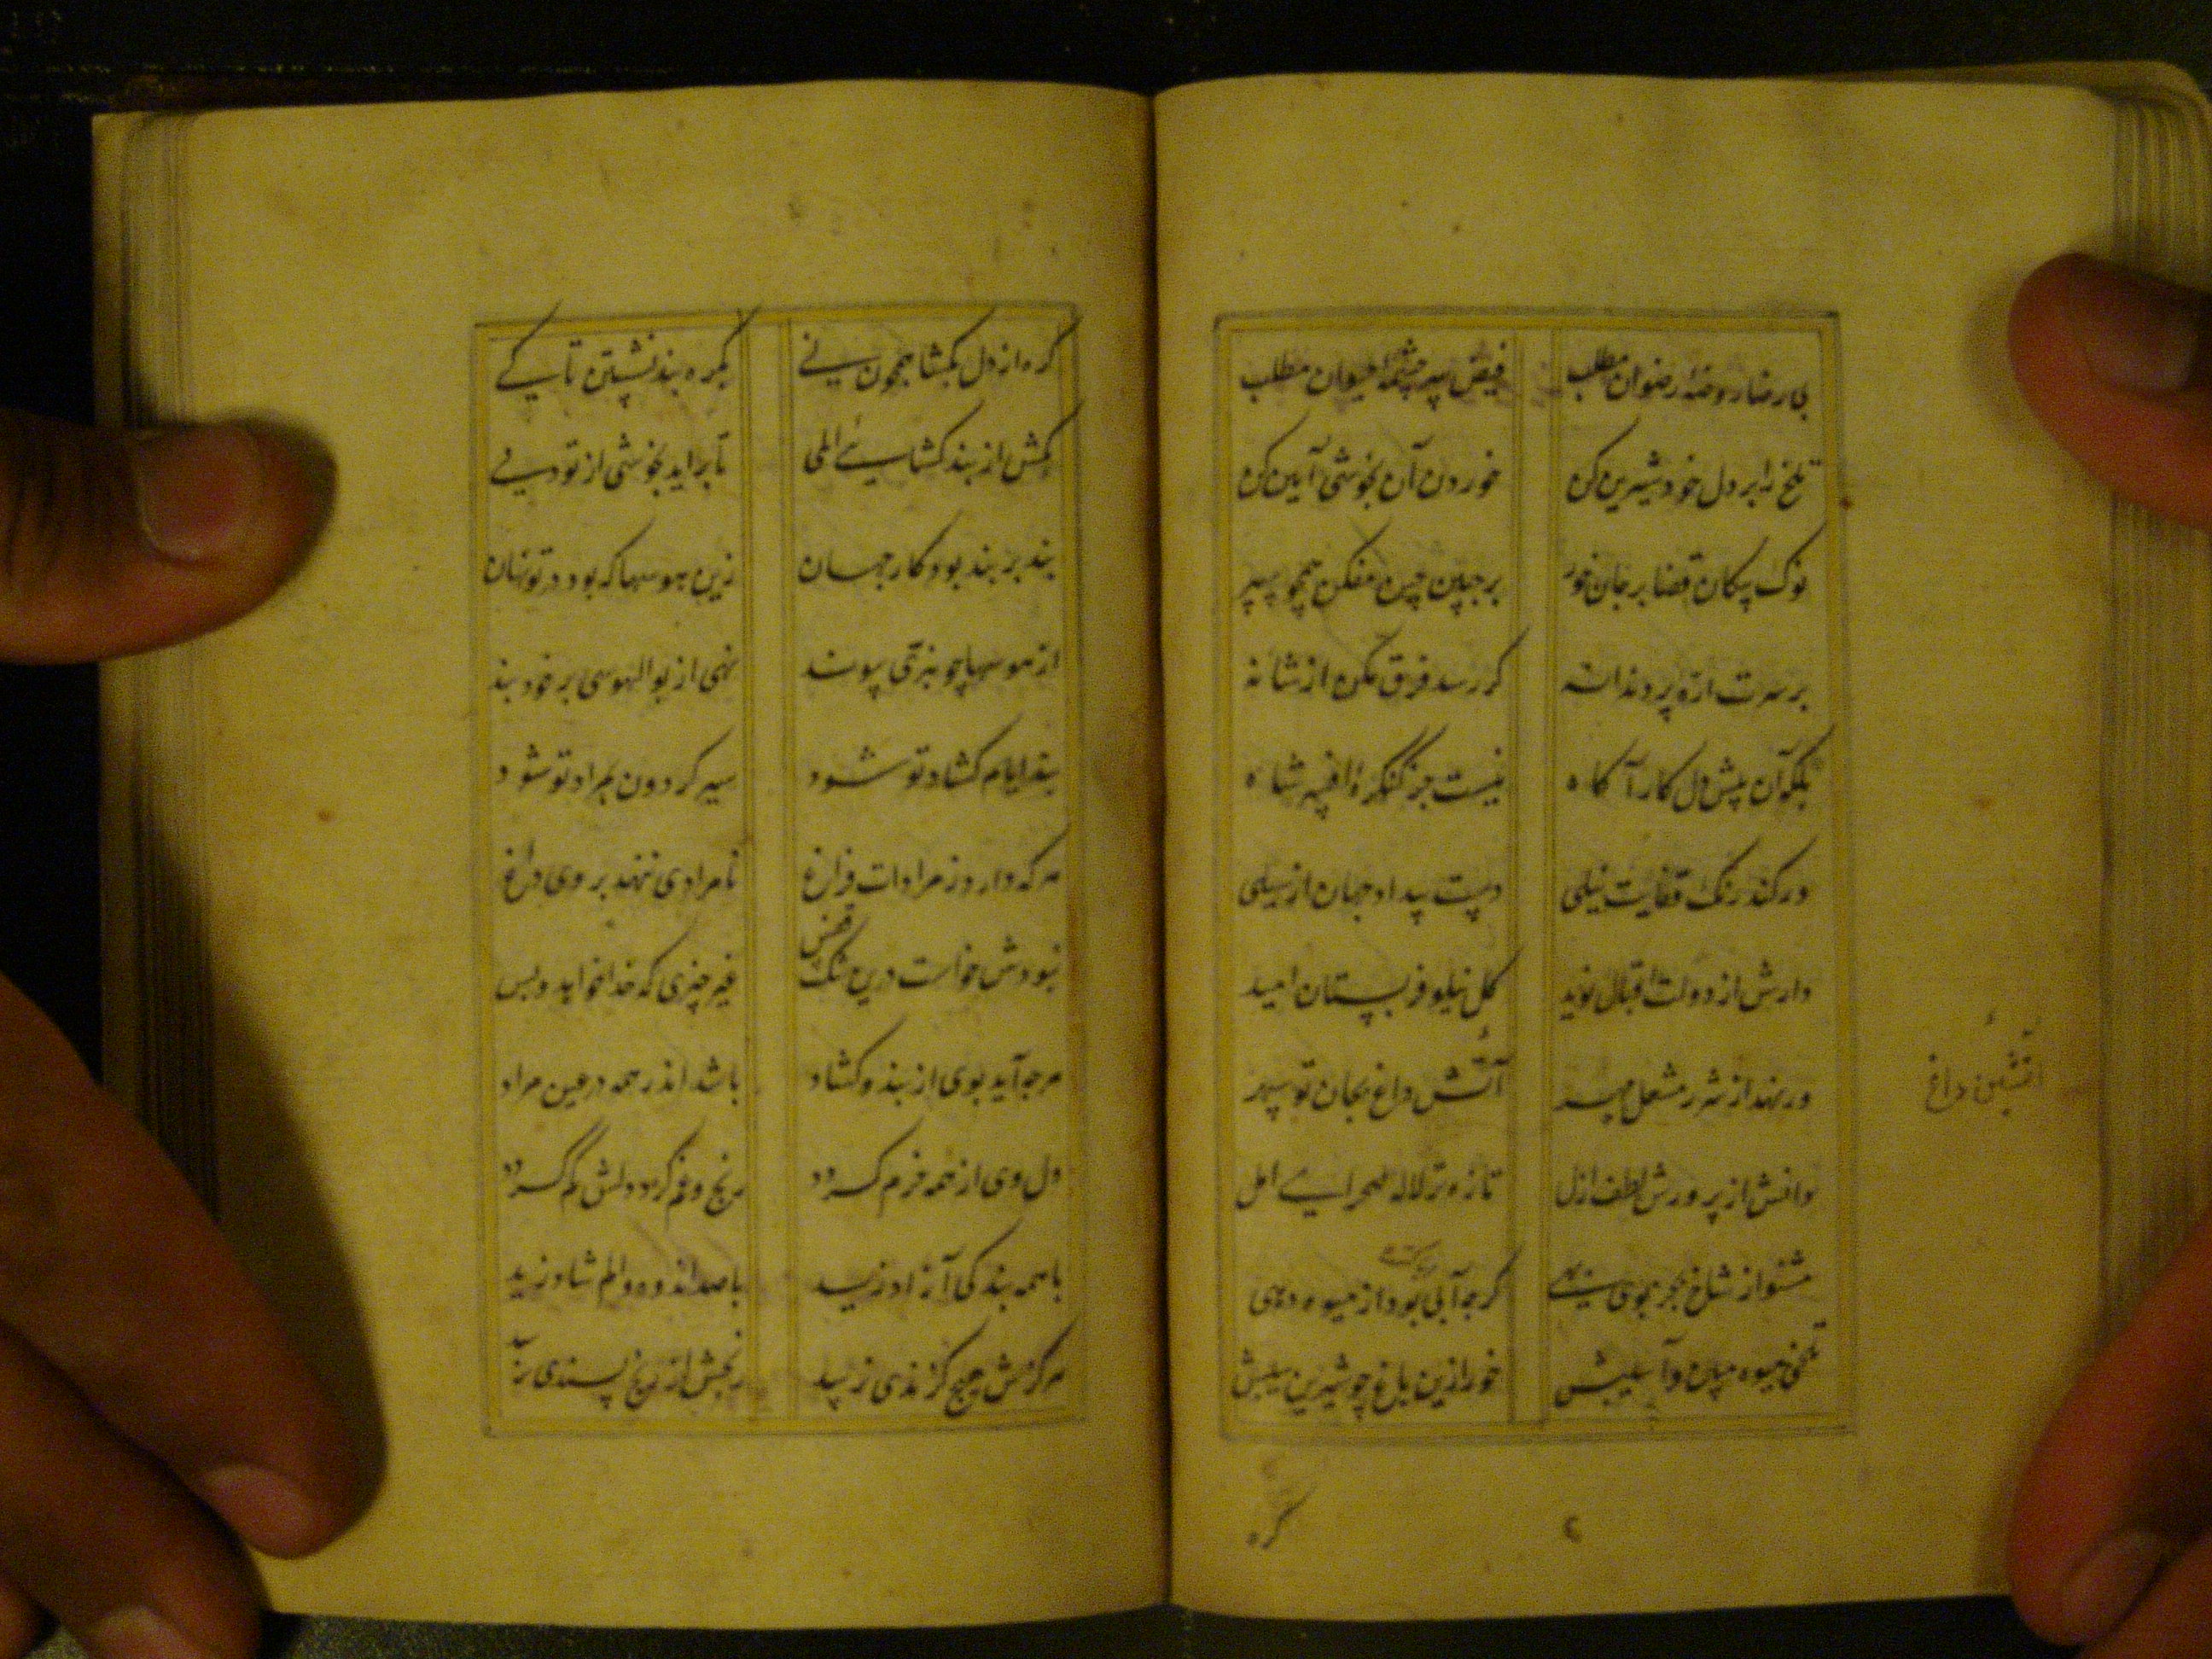 بی رضا روضهٔ رضوان مطلب فیض سرچشمهٔ حیوان مطلب
تلخ را بر دل خود شیرین کن خوردن آن بخوشی آیین کن
نوک پیکان قضا بر جان خور بر جبین چین مفکن همچو سپر
بر سرت ارّه پر دندانه کر رسد فرق مکن از شانه
بلکه آن پیش دل کار آکاه نیست جز کنکرهٔ افسر شاه
ور کند رنک قفایت نیلی دست بیداد جهان از سیلی
دارش از دولت اقبال نوید کل نیلوفر بستان امید
ور نهد از شرر مشعل مهر آتش داغ بجان تو سپهر
آتشین داغ
دانش از پرورش لطف ازل تازه تر لاله صحرای امل
مشنو از شاخ بجز بوی بهی کرچه آبی بود از میوه دهی
تلخی میوه میان و آسیبش خور ازین باغ چو شیرین سیبش
کره
کره از دل بکشا همچون نی بکره بند نشستن تا کی
مکش از بند کشایی المی تا براید بخوشی از تو دمی
بند بر بند بود کار جهان زین هوسها که بود در تو نهان
از هوسها چو ببرّی پیوند نهی از بوالهوسی بر خود بند
بند ایام کشاد تو شود سیر کردون بمراد تو شود
هر که دارد ز مرادات فراغ نامرادی ننهد بر وی داغ
نبودش خواست درین تنک قفس غیر چیزی که خدا خواهد و بس
هر چه آید بوی از بند و کشاد باشد اندر همه در عین مراد
دل وی از همه خرم کردد رنج و غم کرد دلش کم کردد
با همه بندکی آزاد زید با صد اندوه و الم شاد زید
هرکزش هیچ کزندی نرسد رنجش از رنج پسندی نرسد